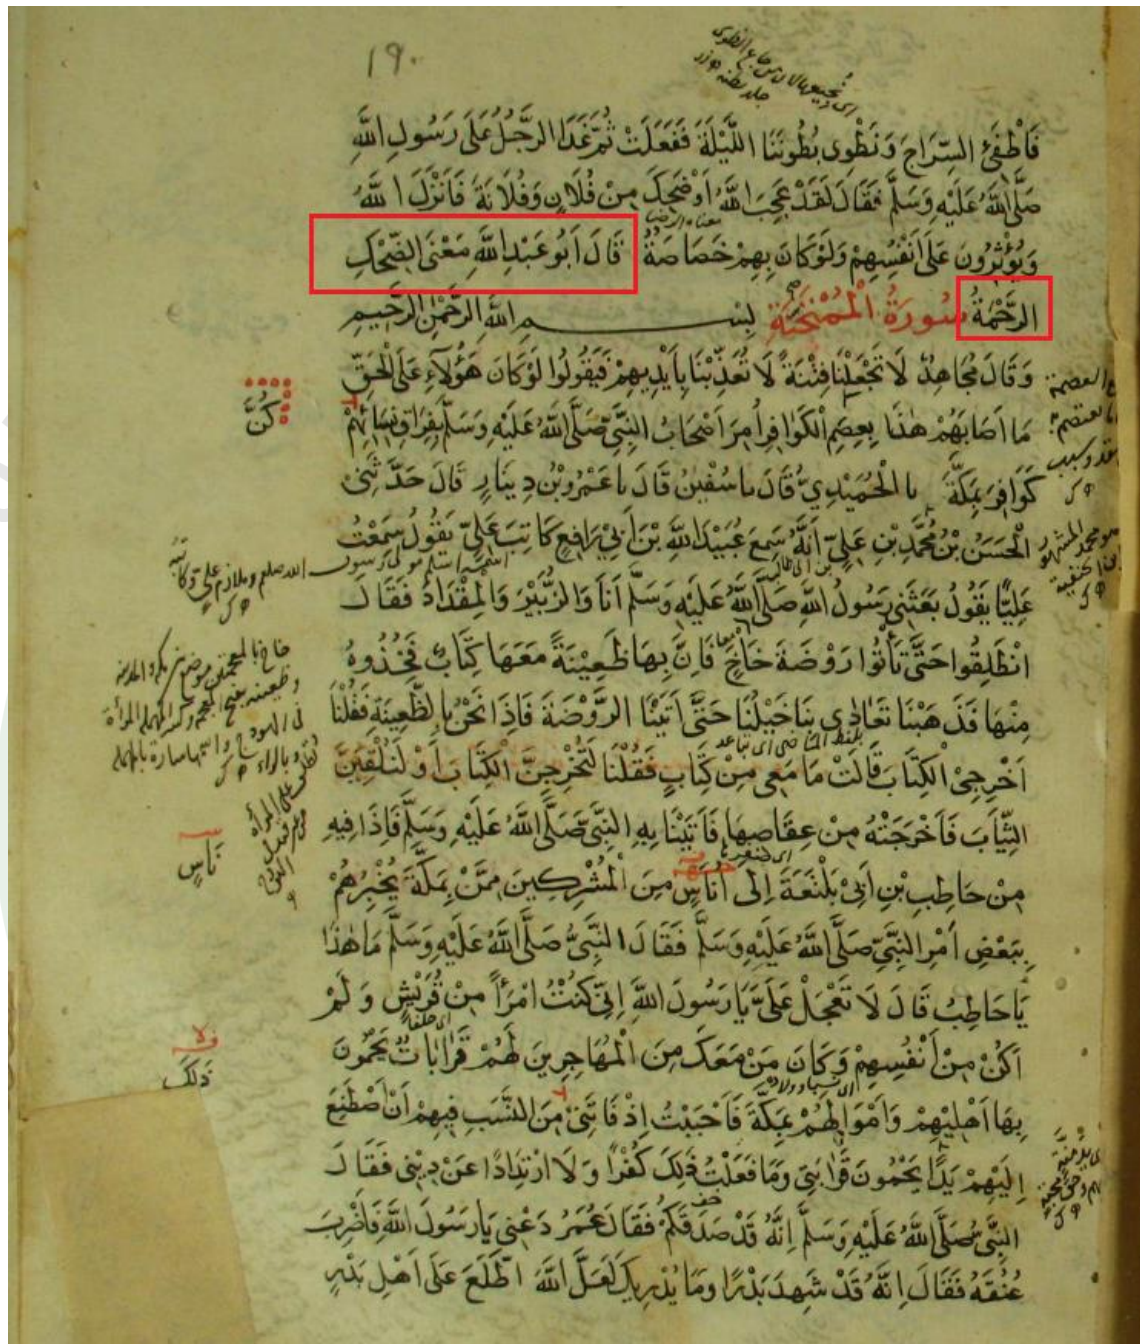 ١٩٠
فَأَطْفِئِ السِّرَاجَ وَنَطْوِي بُطُونَنَا اللَّيْلَةَ فَفَعَلَتْ ثُمَّ غَدَا الرَّجُلُ عَلَى رَسُولِ اللَّهِ
صَلَّى اللَّهُ عَلَيْهِ وَسَلَّمَ فَقَالَ لَقَدْ عَجِبَ اللَّهُ أَوْ ضَحِكَ مِنْ فُلَانٍ وَفُلَانَةَ فَأَنْزَلَ اللَّهُ
وَيُؤْثِرُونَ عَلَى أَنْفُسِهِمْ وَلَوْ كَانَ بِهِمْ خَصَاصَةٌ قَالَ أَبُو عَبْدِ اللَّهِ مَعْنَى الضَّحِكِ
الرَّحْمَةُ سُورَةُ الْمُمْتَحِنَةِ بِسْمِ اللَّهِ الرَّحْمَنِ الرَّحِيمِ
وَقَالَ مُجَاهِدٌ لَا تَجْعَلْنَا فِتْنَةً لَا تُعَذِّبْنَا بِأَيْدِيهِمْ فَيَقُولُوا لَوْ كَانَ هَؤُلَاءِ عَلَى الْحَقِّ
مَا أَصَابَهُمْ هَذَا بِعِصَمِ الْكَوَافِرِ أُمِرَ أَصْحَابُ النَّبِيِّ صَلَّى اللَّهُ عَلَيْهِ وَسَلَّمَ بِفِرَاقِ نِسَائِهِمْ
كُنَّ
كَوَافِرَ بِمَكَّةَ نا الْحُمَيْدِيُّ قَالَ نا سُفْيٰنُ قَالَ نا عَمْرُو بْنُ دِينَارٍ قَالَ حَدَّثَنِي
الْحَسَنُ بْنُ مُحَمَّدِ بْنِ عَلِيٍّ أَنَّهُ سَمِعَ عُبَيْدَ اللَّهِ بْنَ أَبِي رَافِعٍ كَاتِبَ عَلِيٍّ يَقُولُ سَمِعْتُ
عَلِيًّا يَقُولُ بَعَثَنِي رَسُولُ اللَّهِ صَلَّى اللَّهُ عَلَيْهِ وَسَلَّمَ أَنَا وَالزُّبَيْرَ وَالْمِقْدَادَ فَقَالَ
انْطَلِقُوا حَتَّى تَأْتُوا رَوْضَةَ خَاخٍ فَإِنَّ بِهَا ظَعِينَةً مَعَهَا كِتَابٌ فَخُذُوهُ
مِنْهَا فَذَهَبْنَا تَعَادَى بِنَا خَيْلُنَا حَتَّى أَتَيْنَا الرَّوْضَةَ فَإِذَا نَحْنُ بِالظَّعِينَةِ فَقُلْنَا
أَخْرِجِي الْكِتَابَ قَالَتْ مَا مَعِي مِنْ كِتَابٍ فَقُلْنَا لَتُخْرِجِنَّ الْكِتَابَ أَوْ لَنُلْقِيَنَّ
الثِّيَابَ فَأَخْرَجَتْهُ مِنْ عِقَاصِهَا فَأَتَيْنَا بِهِ النَّبِيَّ صَلَّى اللَّهُ عَلَيْهِ وَسَلَّمَ فَإِذَا فِيهِ
نَاسٍ
مِنْ حَاطِبِ بْنِ أَبِي بَلْتَعَةَ إِلَى أُنَاسٍ مِنَ الْمُشْرِكِينَ مِمَّنْ بِمَكَّةَ يُخْبِرُهُمْ
بِبَعْضِ أَمْرِ النَّبِيِّ صَلَّى اللَّهُ عَلَيْهِ وَسَلَّمَ فَقَالَ النَّبِيُّ صَلَّى اللَّهُ عَلَيْهِ وَسَلَّمَ مَا هَذَا
يَا حَاطِبُ قَالَ لَا تَعْجَلْ عَلَيَّ يَا رَسُولَ اللَّهِ إِنِّي كُنْتُ امْرَأً مِنْ قُرَيْشٍ وَلَمْ
أَكُنْ مِنْ أَنْفُسِهِمْ وَكَانَ مَنْ مَعَكَ مِنَ الْمُهَاجِرِينَ لَهُمْ قَرَابَاتٌ يَحْمُونَ
ذَلِكَ
بِهَا أَهْلِيهِمْ وَأَمْوَالَهُمْ بِمَكَّةَ فَأَحْبَبْتُ إِذْ فَاتَنِي مِنَ النَّسَبِ فِيهِمْ أَنْ أَصْطَنِعَ
إِلَيْهِمْ يَدًا يَحْمُونَ قَرَابَتِي وَمَا فَعَلْتُ ذَلِكَ كُفْرًا وَلَا ارْتِدَادًا عَنْ دِينِي فَقَالَ
النَّبِيُّ صَلَّى اللَّهُ عَلَيْهِ وَسَلَّمَ إِنَّهُ قَدْ صَدَقَكُمْ فَقَالَ عُمَرُ دَعْنِي يَا رَسُولَ اللَّهِ فَأَضْرِبَ
عُنُقَهُ فَقَالَ إِنَّهُ قَدْ شَهِدَ بَدْرًا وَمَا يُدْرِيكَ لَعَلَّ اللَّهَ اطَّلَعَ عَلَى أَهْلِ بَدْرٍ